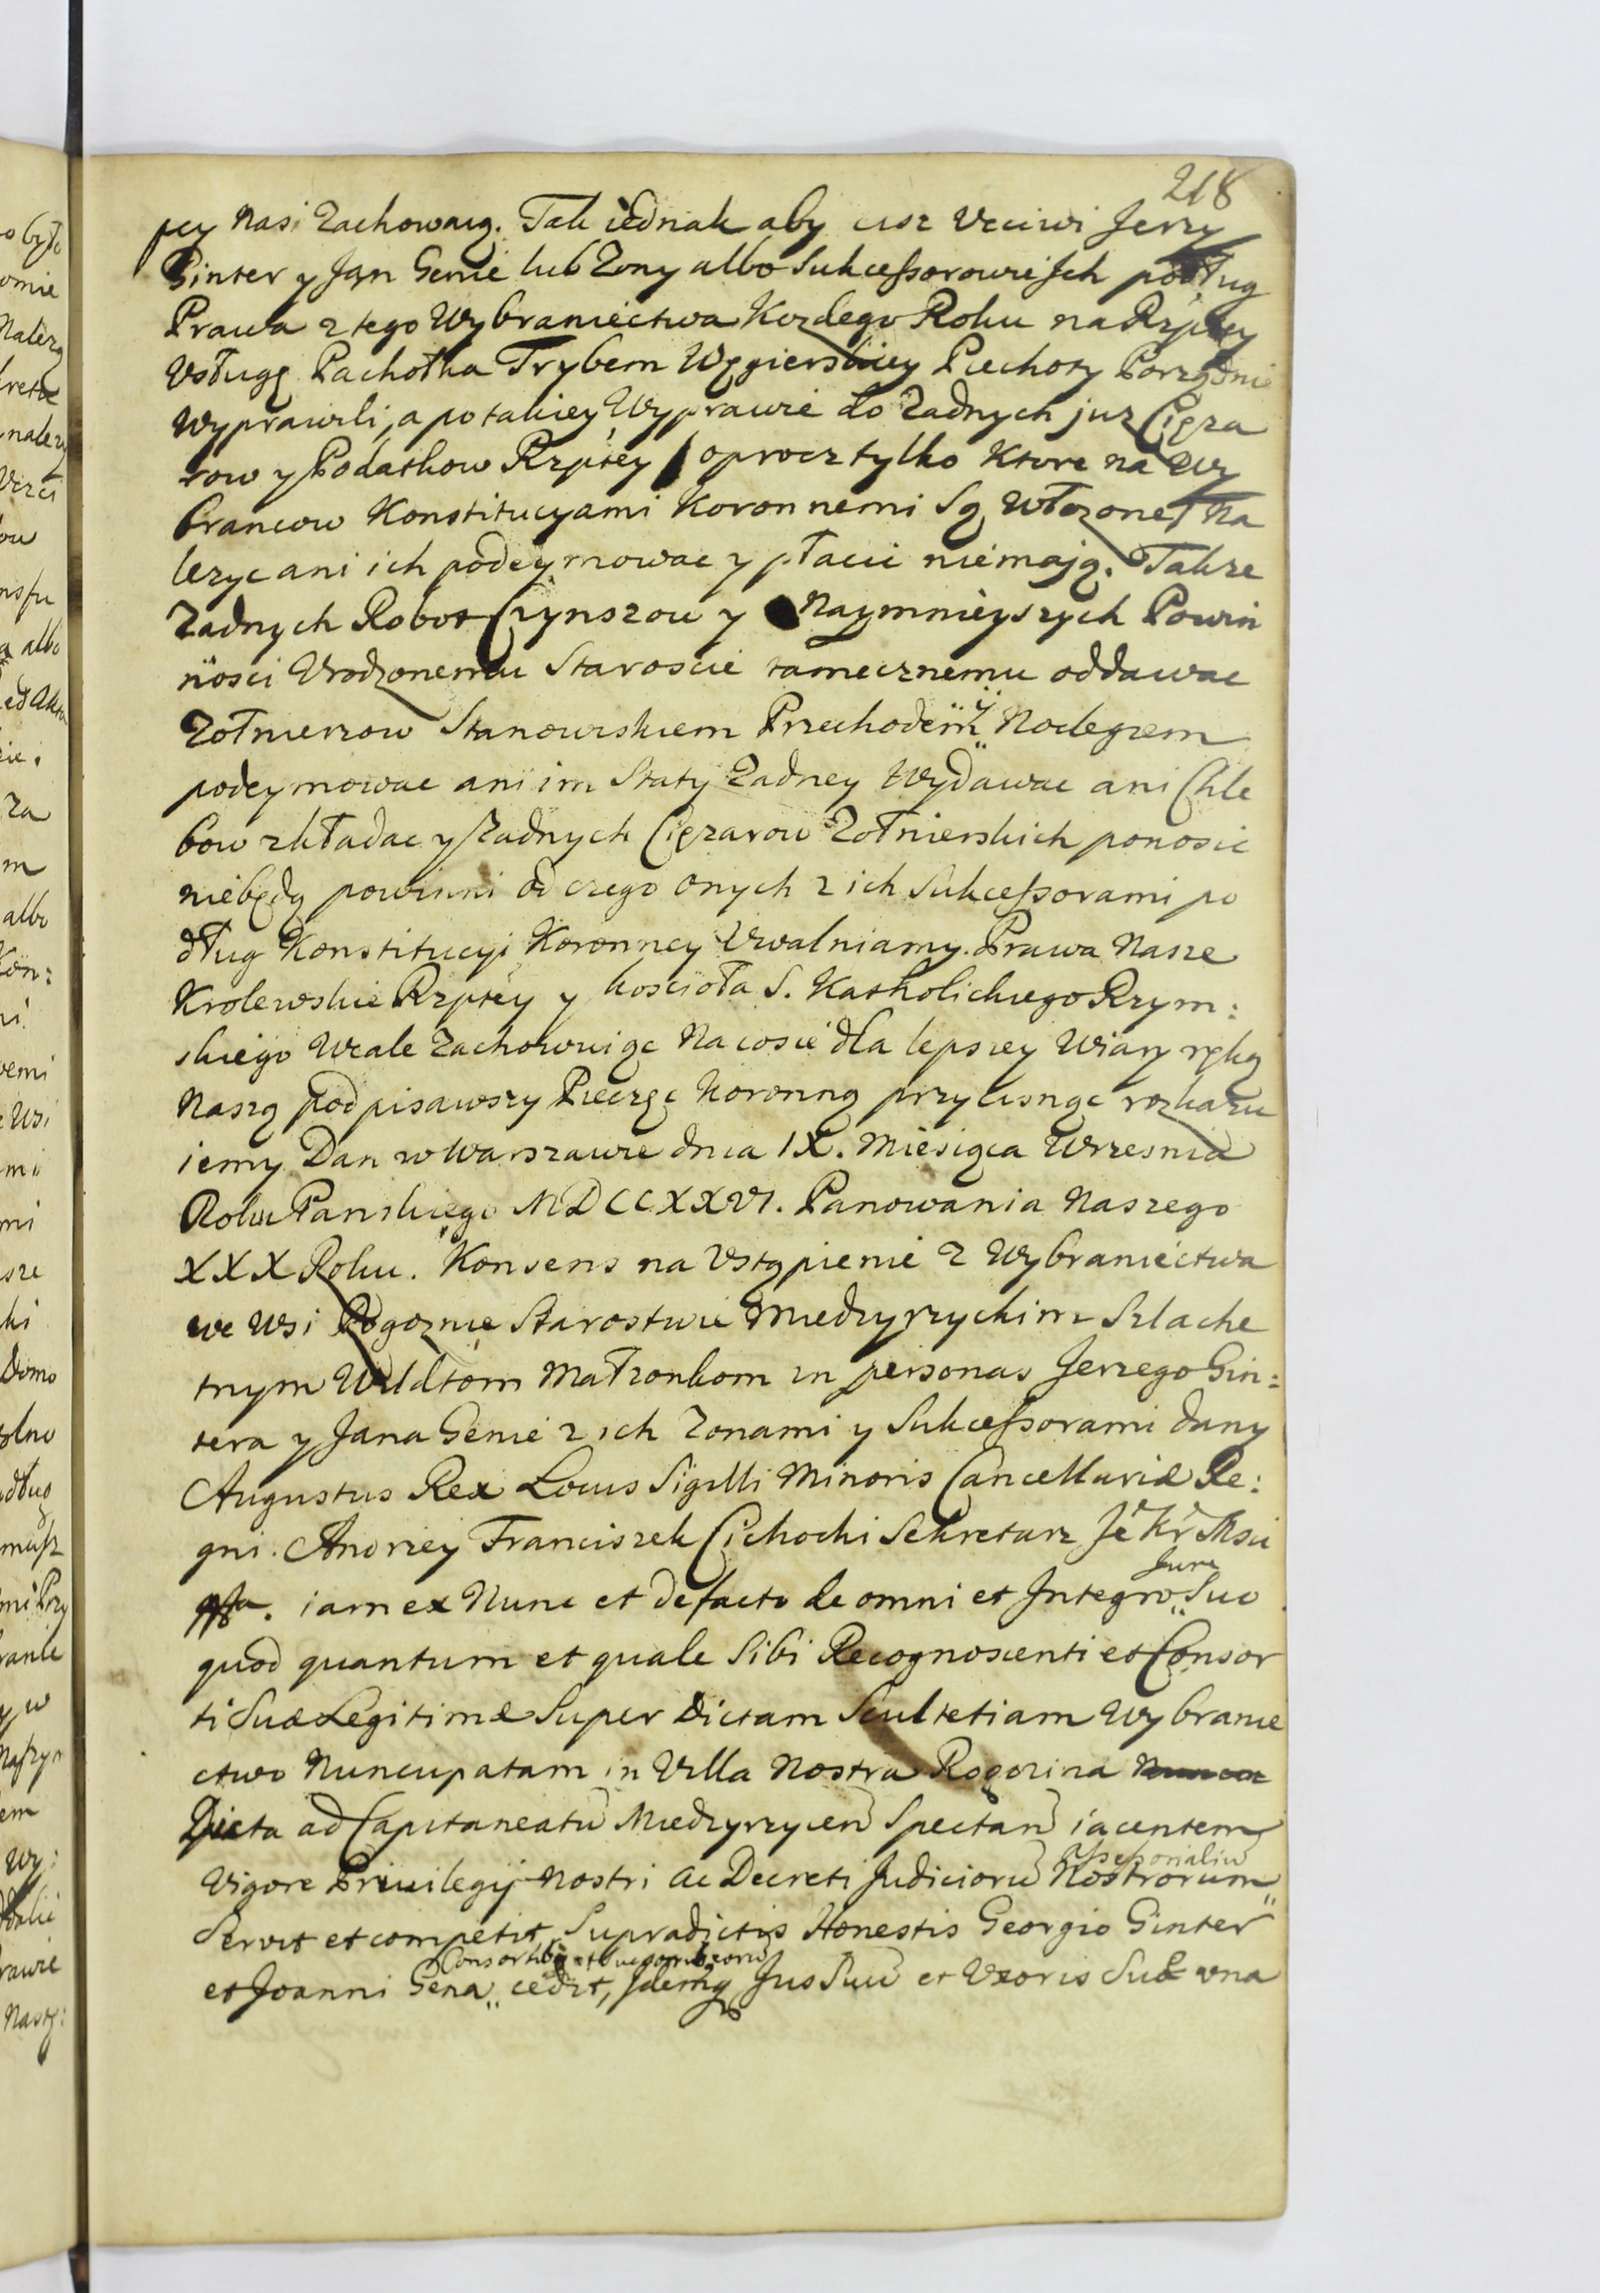 218
pcy Nasi Zachowaią. Tak iednak aby cisz Uczciwi Jerzy
Ginter y Jan Genie lub Zony albo Sukcessorowie Ich podług
Prawa z tego Wybraniectwa Kozdego Roku na Rzptey
Usługę Pachołka Trybem Węgierskiey Piechoty Porządnie
Wyprawili, a po takiey Wyprawie do Zadnych juz Cięza
row y Podatkow Rzptey / oprocz tylko Ktore na Wy
brancow Konstitucyami Koronnemi Są Włozone / Na
lezyc ani ich podeymowac y płacic niemają. Takze
Zadnych Robot Czynszow y Naymnieyszych Powin
nosci Urodzonemu Staroscie tamecznemu oddawac
Zołnierzow Stanowiskiem Przechodem y Noclegiem
podeymowac ani im Staty Zadney Wydawac ani Chle
bow zkładac y Zadnych Cięzarow Zołnierskich ponosic
niebędą powinni od czego onych z ich Sukcessorami po
dług Konstitucyi Koronney Uwalniamy. Prawa Nasze
Krolewskie Rzptey y koscioła S. Katholickiego Rzym:
skiego Wcale Zachowuiąc Na cosie dla lepszey Wiary ręką
Naszą podpisawszy Pieczęc Koronną przycisnąc rozkazu
iemy Dan w Warszawie dnia IX. Miesiąca Wrzesnia
Roku Panskiego MDCCXXVI. Panowania Naszego
XXX Roku. Konsens na Ustąpienie z Wybraniectwa
we Wsi Rogoznie Starostwie Miedzyrzyckim Szlache
tnym Wildtom Małzonkom in personas Jerzego Gin:
tera y Jana Genie z ich Zonami y Sukcessorami dany
Augustus Rex Locus Sigilli Minoris Cancellariæ Re:
gni. Andrzey Franciszek Cichocki Sekretarz Je Kr Msci
iam ex Nunc et defacto de omni et Integro Jure Suo
quod quantum et quale Sibi Recognoscenti et Consor
ti Suæ Legitimæ Super Dictam Scultetiam Wybranie
ctwo Nuncupatam in Villa Nostra Rogozina
Dicta ad Capitaneatũ Miedzyrzycen Spectan iacentem
Vigore Privilegij Nostri ac Decreti Judiciorũ Assessorialiũ Nostrorum
Servit et competit Supradictis Honestis Georgio Ginter
et Joanni Gena cedit, Idemq Jus Suũ et Uxoris Suæ una